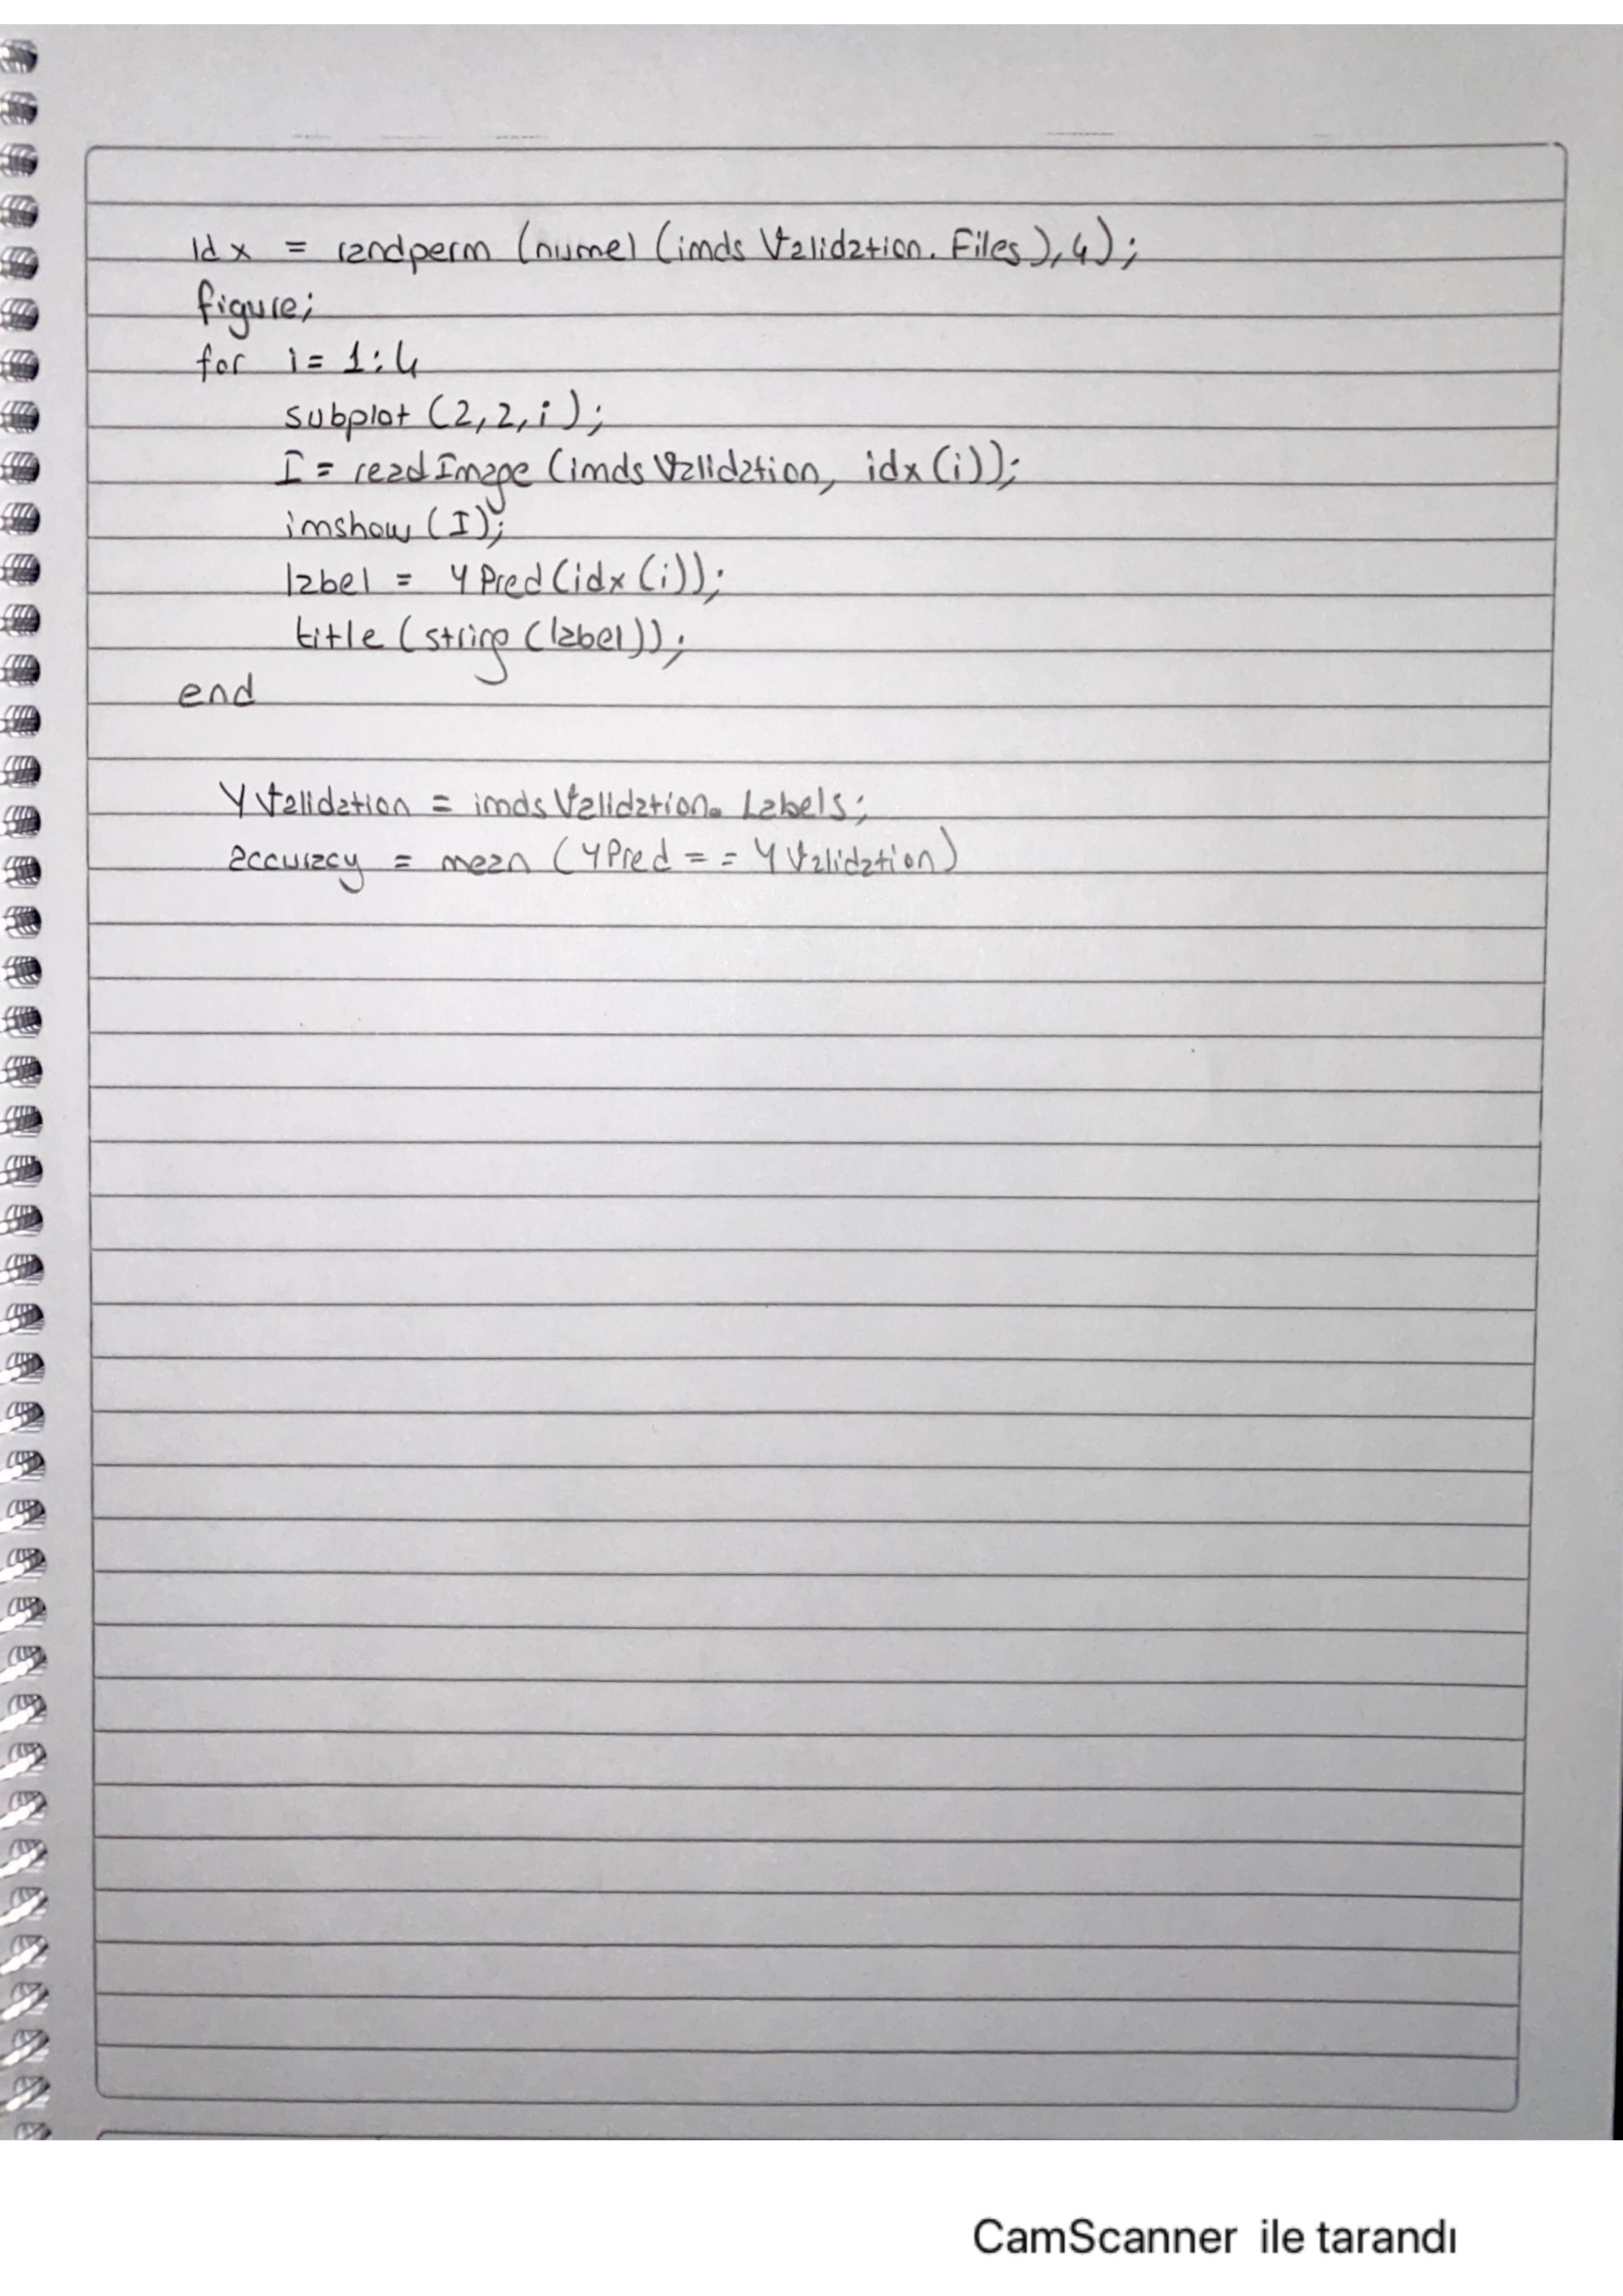 idx = randperm (numel (imds Validation. Files), 4);
figure;
for i = 1:4
subplot (2,2,i);
I = readImage (imds Validation, idx (i));
imshow (I);
label = YPred (idx (i));
title (string (label));
end
YValidation = imds Validation. Labels;
accuracy = mean (YPred = = YValidation)
CamScanner ile tarandı